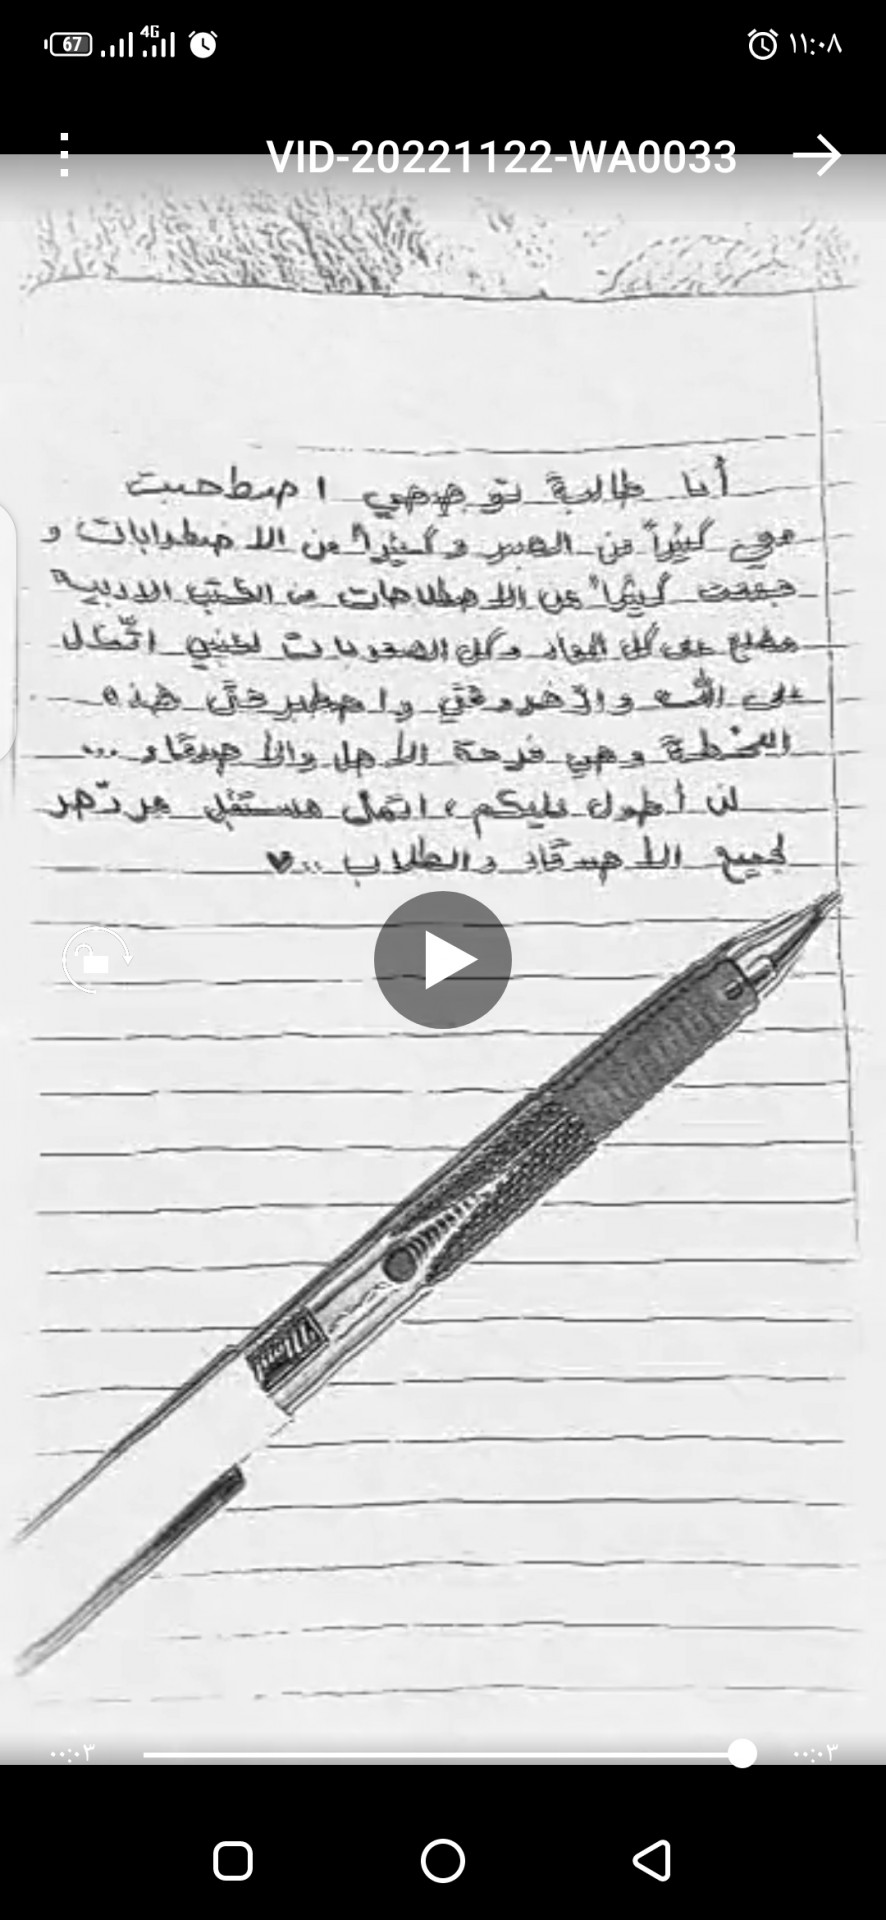 67
4G
١١:٠٨
VID-20221122-WA0033
أنا طالبة توجيهي اصطحبت
معي كثيراً من الصبر وكثيراً من الاضطرابات و
كثيراً من الاصطلاحات من الكتب الادبية
مطلع على كل المواد وكل الصعوبات لكنني اتّكل
على الله واصطبر حتَّى هذه
اللّحظة وهي فرحة الأهل والأصدقاء ...
لن أطول عليكم، اتمنى مستقبل مزدهر
لجميع الأصدقاء والطلاب .. ♥
٠٠:٠٣
٠٠:٠٣